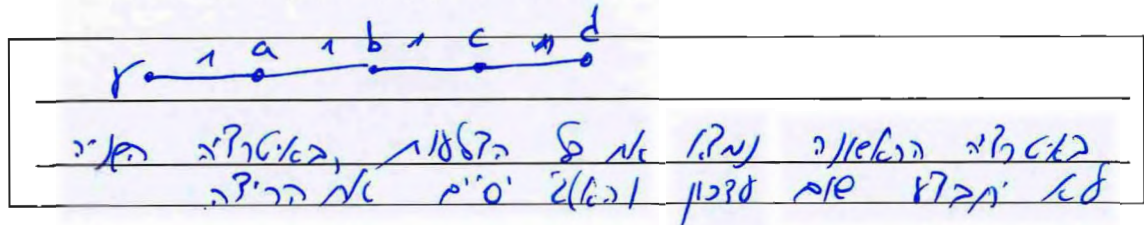 r 1 a 1 b 1 c 1 d
באיטרציה הראשונה נמצא את כל הצלעות, באיטרציה השנייה
לא יתבצע שום עדכון והאלג' יסיים את הריצה